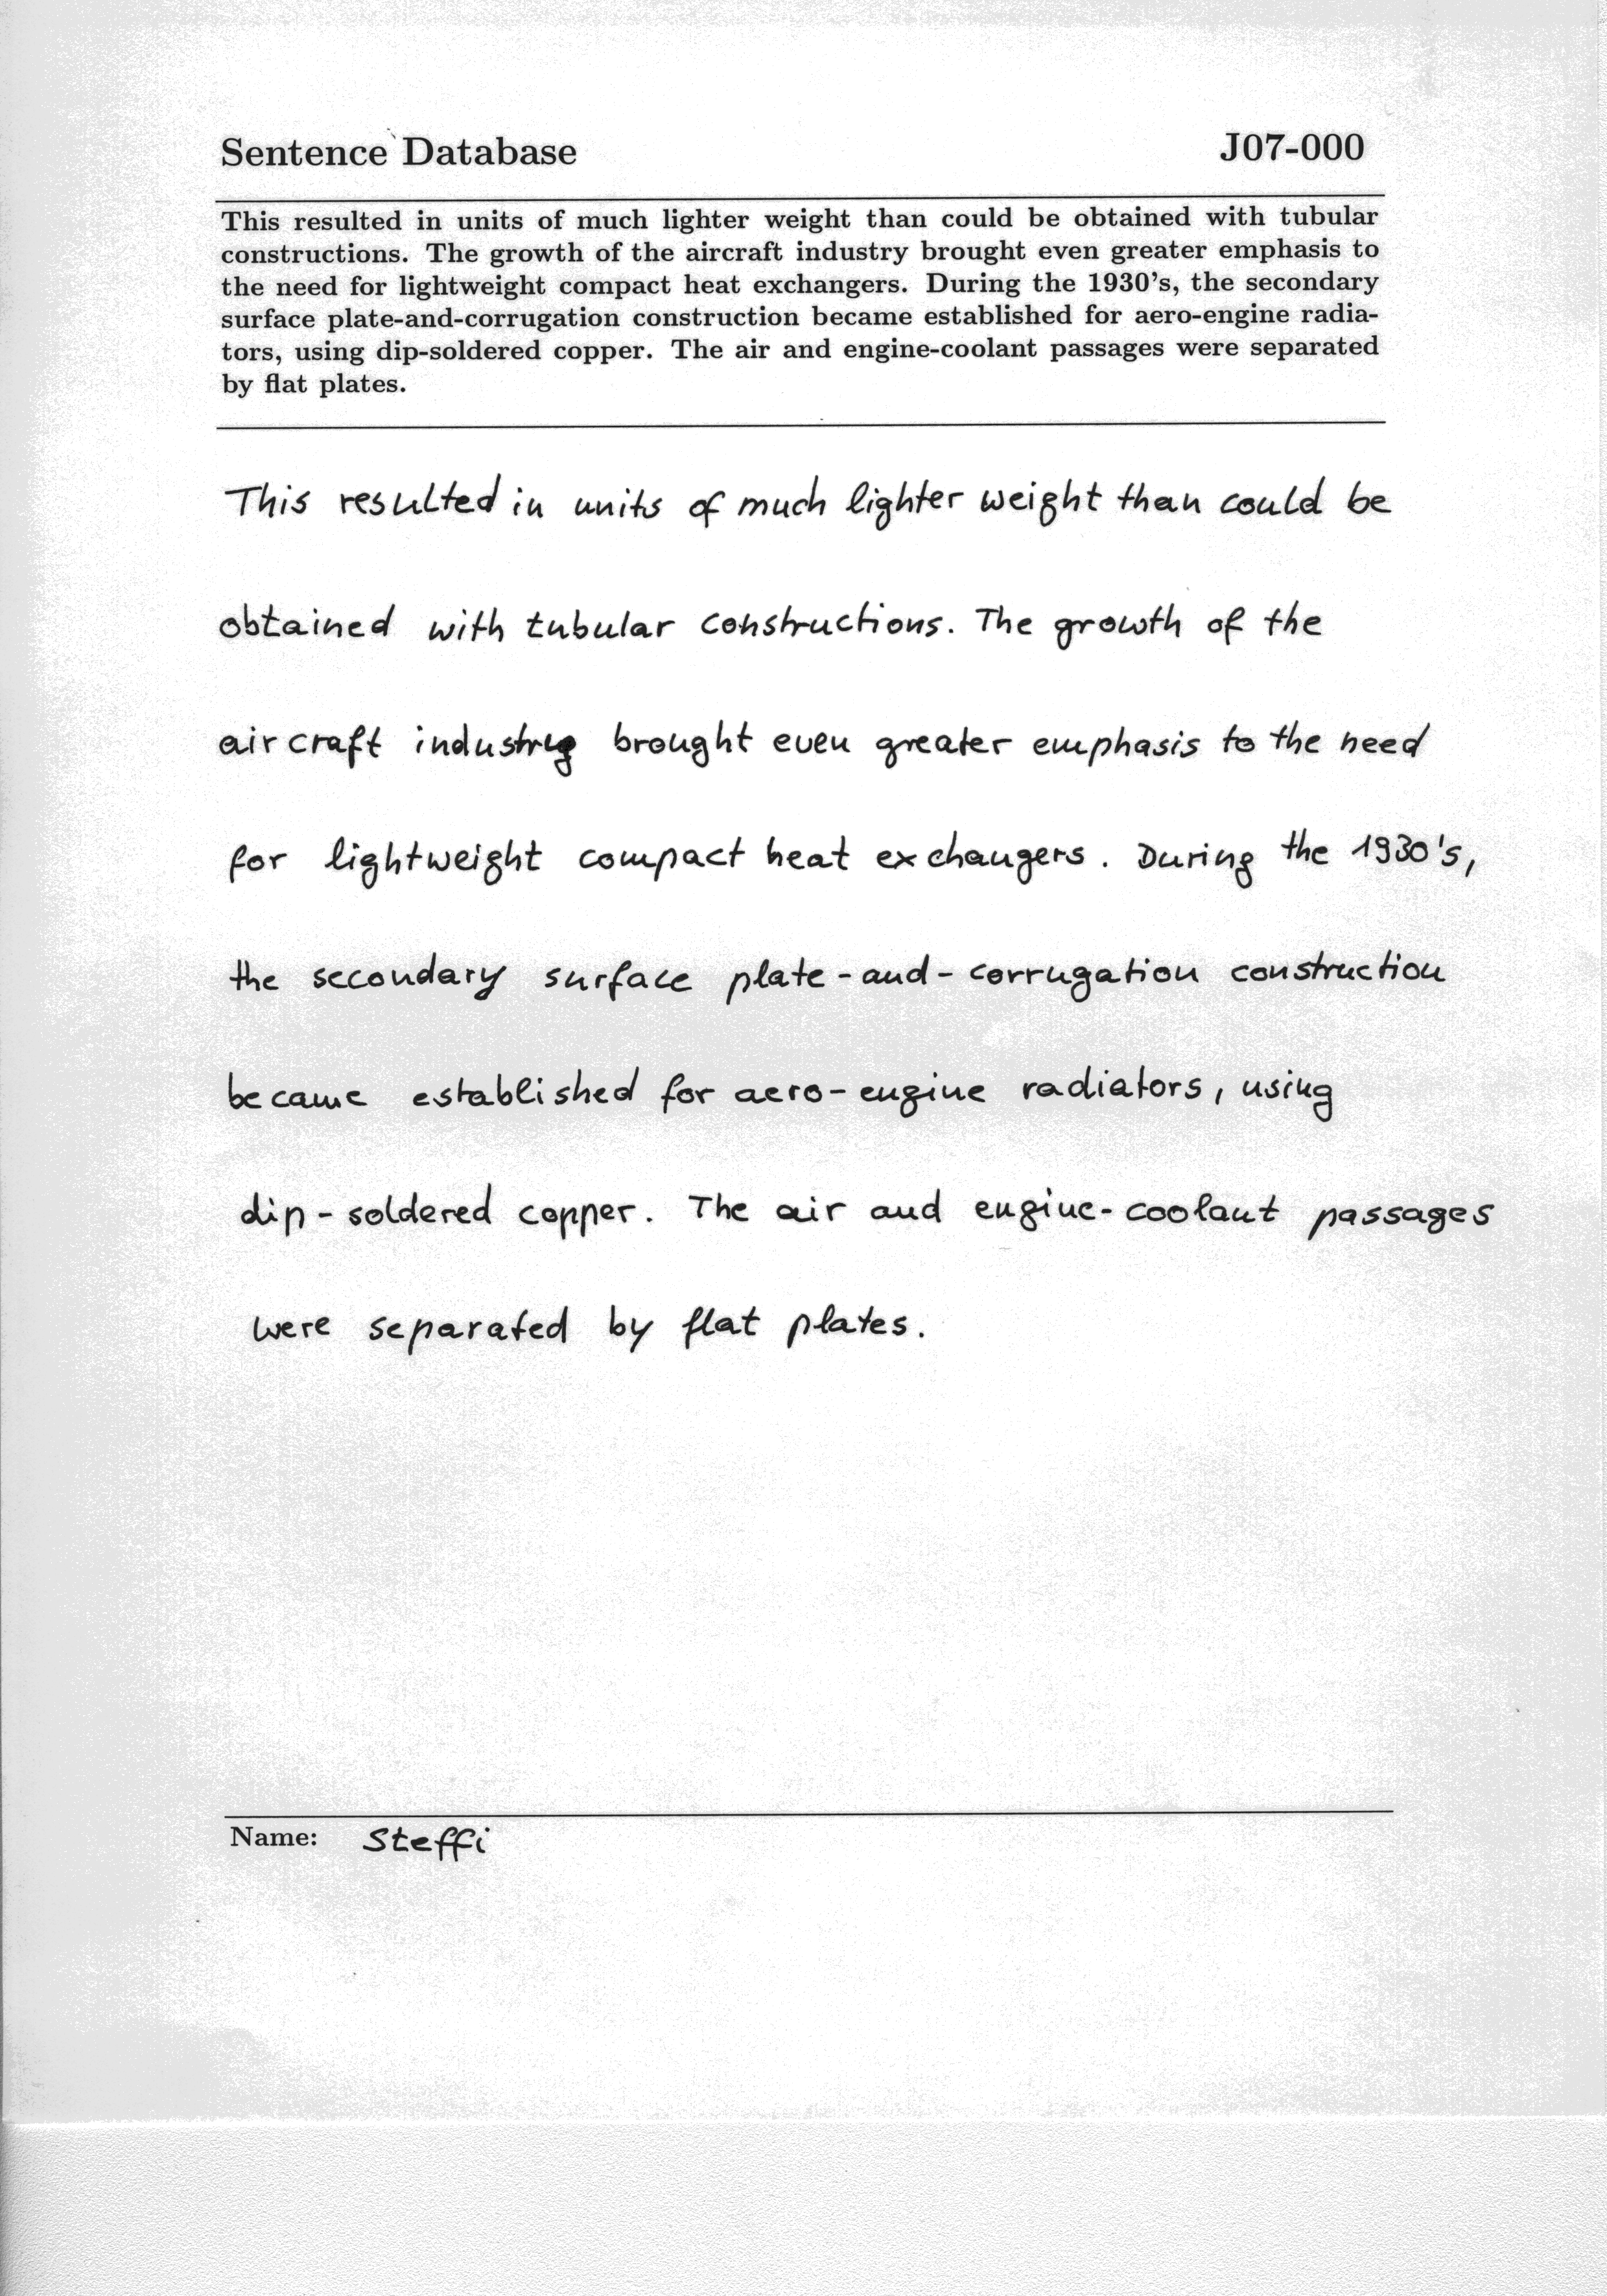 Sentence Database
J07-000
This resulted in units of much lighter weight than could be obtained with tubular
constructions. The growth of the aircraft industry brought even greater emphasis to
the need for lightweight compact heat exchangers. During the 1930's, the secondary
surface plate-and-corrugation construction became established for aero-engine radia-
tors, using dip-soldered copper. The air and engine-coolant passages were separated
by flat plates.
This resulted in units of much lighter weight than could be
obtained with tubular constructions. The growth of the
aircraft industry brought even greater emphasis to the need
for lightweight compact heat exchangers. During the 1930's,
the secondary surface plate-and-corrugation construction
became established for aero-engine radiators, using
dip-soldered copper. The air and engine-coolant passages
were separated by flat plates.
Name: Steffi